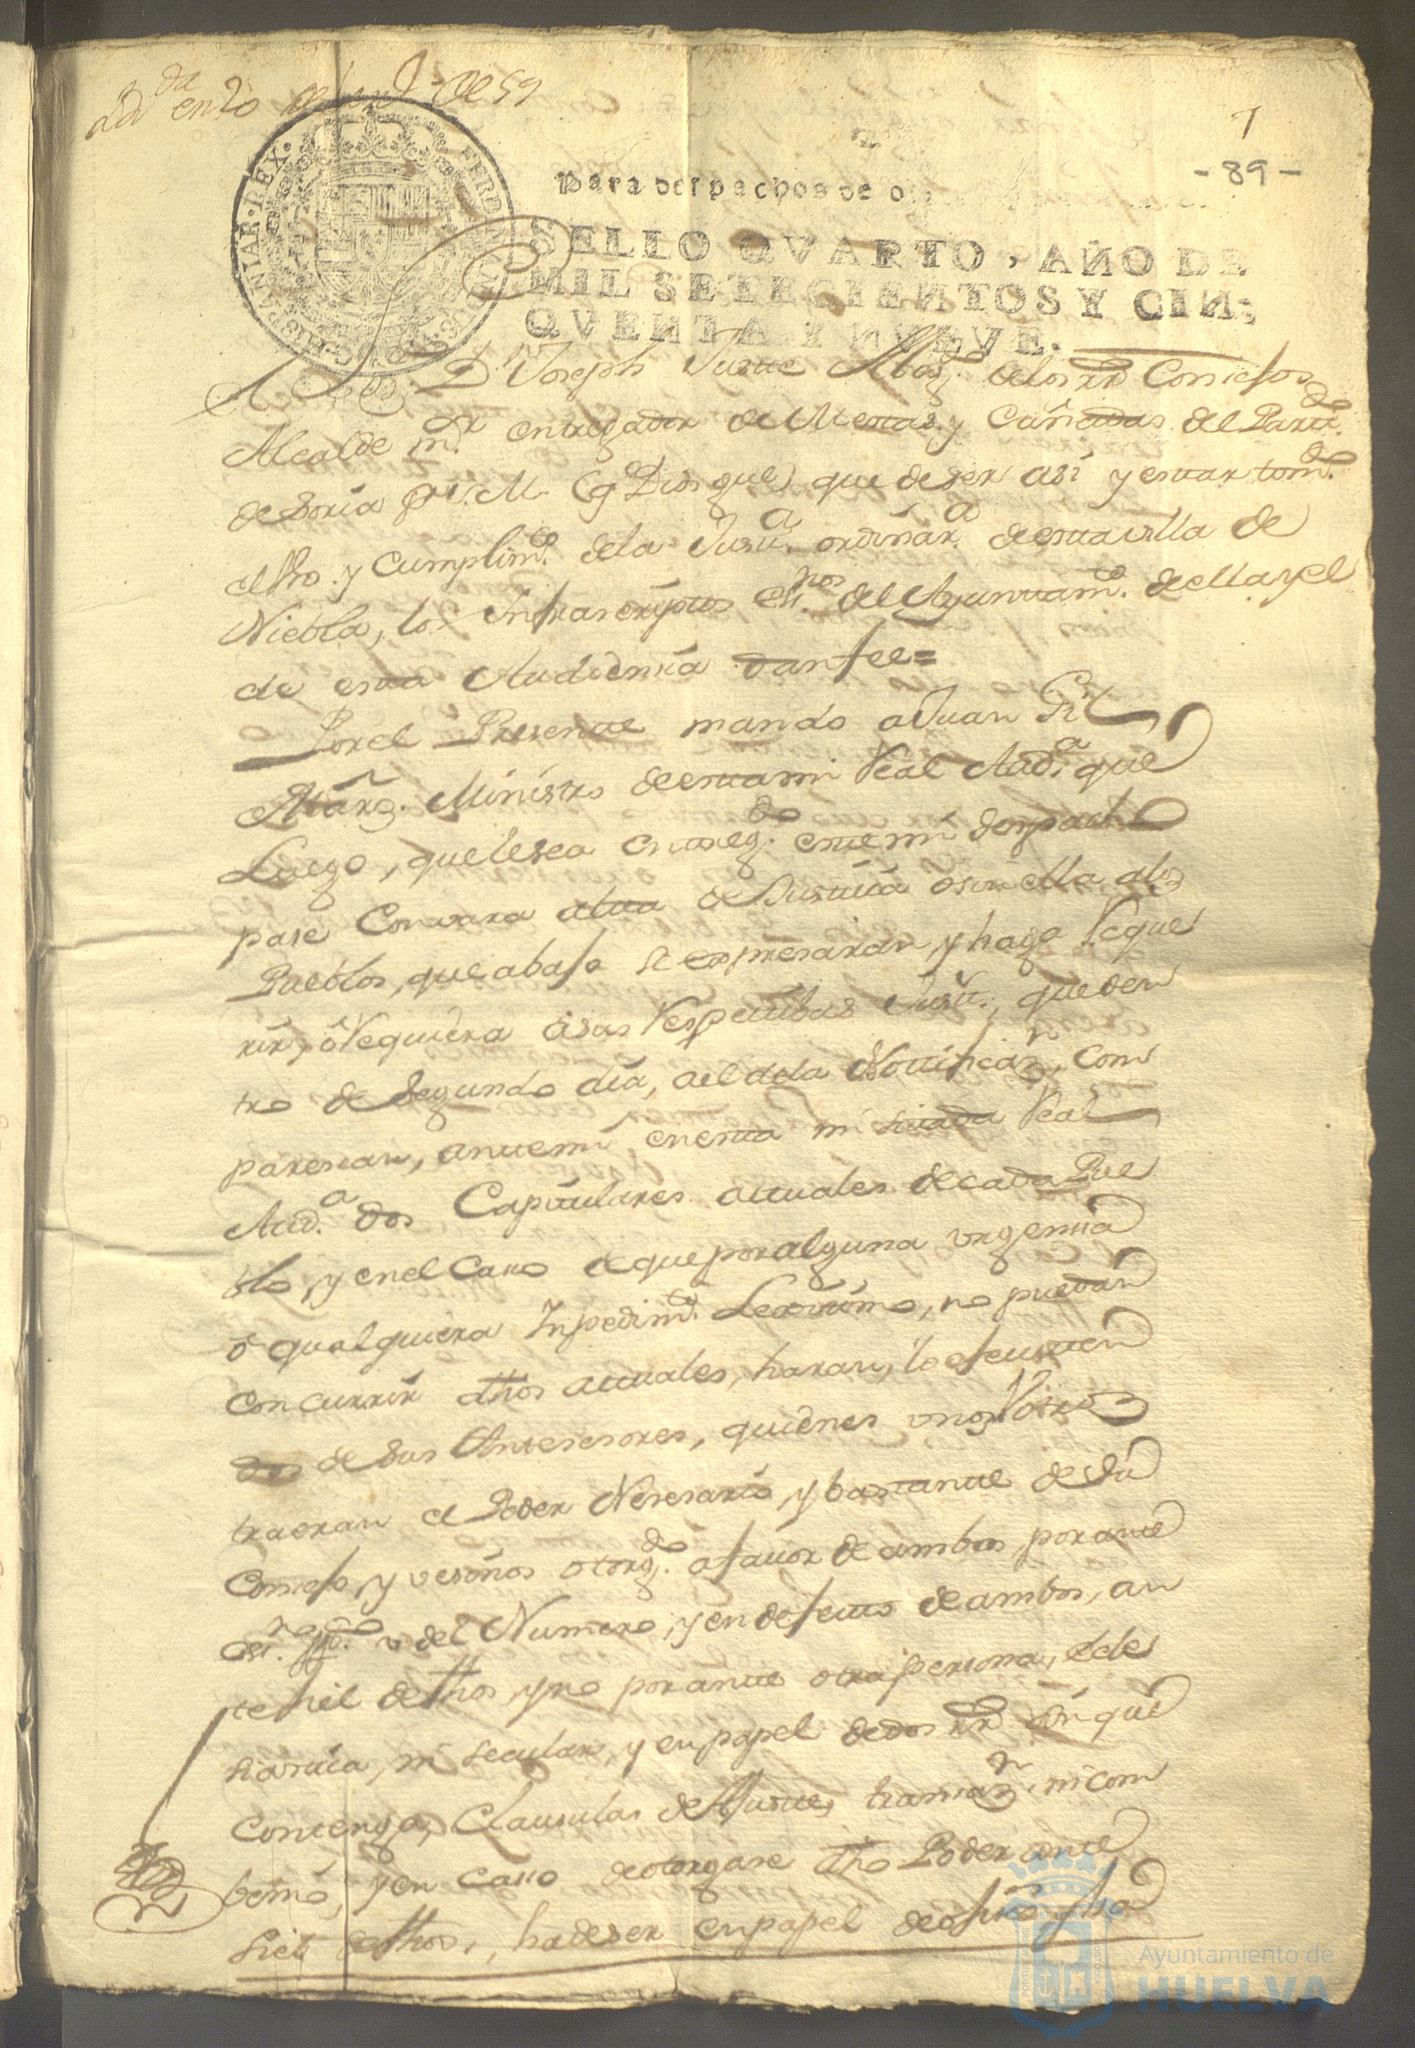 en 20 de 59
1
- 89 -
HISPANIAR · REX · FERD
Para despachos de o
SELLO QVARTO, AÑO DE
MIL SETECIENTOS Y CIN-
QVENTA Y NVEVE.
Dn Joseph Abog.do de los R.s Consejos
Alcalde m.or entregador de Mestas, y Cañadas del Part.do
de Soria por S. M. (q Dios gue) que de ser asi y estar tom.do
el Uso y Cumplim.to de la Just.a ordinar.a de esta villa de
Niebla, los Infrascriptos Ess.nos del Ayuntam.to de ella, y el
de esta Audiencia dan fee =
Por el Presente mando a Juan Gil
Mñrz. Ministro de esta mi Real Aud.a que
Luego, que le sea entreg.do este mi despacho
pase Con vara alta de Justicia o sin ella, a los
Pueblos, que abajo se expresaran, y haga Reque
rir, o Requiera a sus Respectibas Just.s, que den
tro de Segundo dia, a el de la Notificaz.n, Com
parescan, ante mi, en esta mi sitada Real
Aud.a dos Capitulares actuales de cada Pue
blo, y en el Caso de que por alguna urgencia
o qualquiera Inpedim.to Lexitimo, no puedan
concurrir dhos actuales, haran, lo efectuen
dos de sus Antesesores, quienes unos y otros
traeran el Poder Nesesario, y bastante de su
Consejo, y vesinos otorg.do a favor de ambos, por ante
ess.no pp.co o del Numero, y en defecto de ambos, an
te fiel de fhos, y no por ante otra persona, ecle
siastica, ni secular, y en papel de dos r.s sin que
Contenga, Clausulas de Ajuste, transaz.n, ni com
benio, y en caso de otorgarse dho Poder ante
fiel de fhos, ha de ser en papel de ofisio y ha
Ayuntamiento de
HUELVA